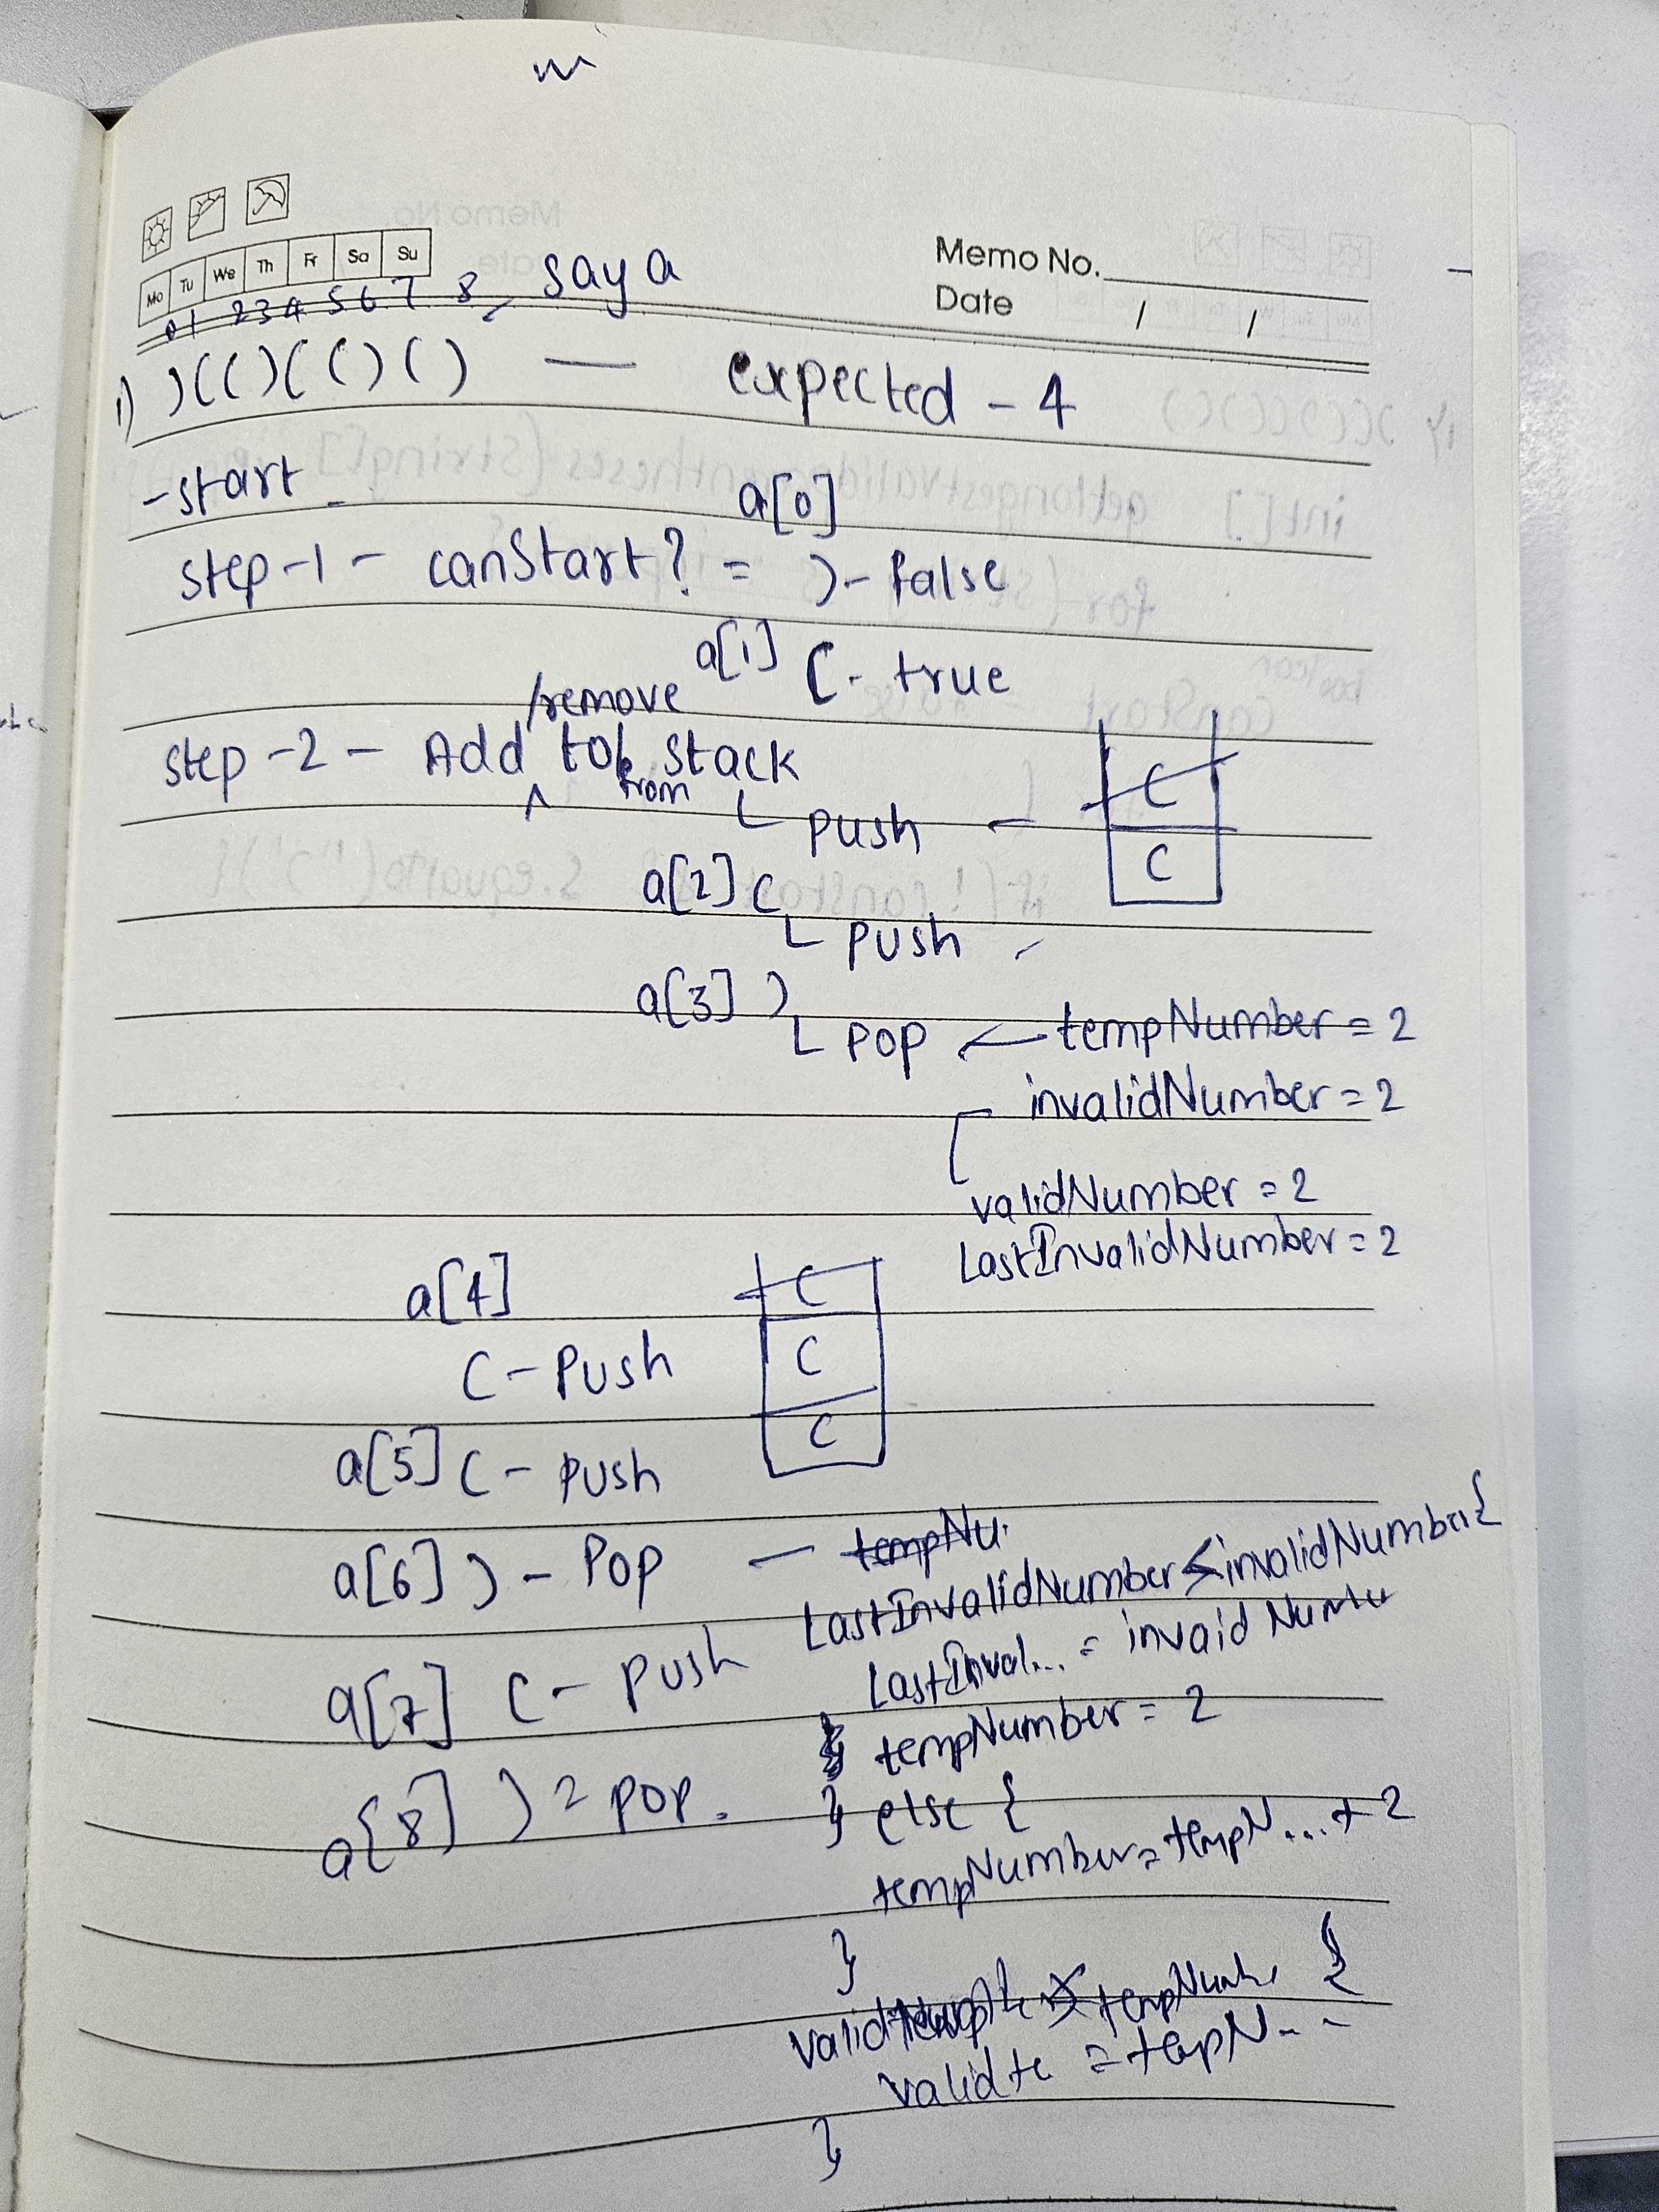 Memo No.
Date / /
Mo Tu We Th Fr Sa Su
0 1 2 3 4 5 6 7 8 say a
1) )(()(()() — expected - 4
- start
a[0]
step-1 - canStart? = )- false
a[1] (- true
/remove
step-2 - Add to/from stack
push
a[2] (
push
a[3] )
pop tempNumber = 2
invalidNumber = 2
validNumber = 2
LastInvalidNumber = 2
a[4]
( - Push
a[5] ( - push
a[6] ) - Pop — tempNu.
LastInvalidNumber < invalidNumber {
LastInval... = invaid Numbe
a[7] ( - push
tempNumber = 2
a[8] ) = pop.
} else {
tempNumber = tempN... + 2
}
tempNum {
= tempN..
}